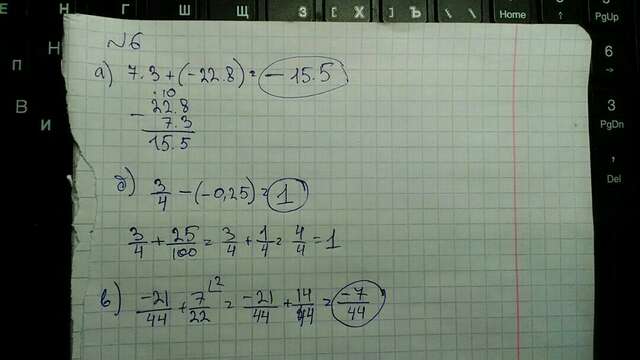 Е Н Г З Х Ъ \ Home ↑ 9 PgUp
П Н
В И
6 →
3 PgDn
, Del
№6
а) 7.3 + (-22.8) = -15.5
.10
- 22.8
7.3
15.5
б) 3/4 - (-0,25) = 1
3/4 + 25/100 = 3/4 + 1/4 = 4/4 = 1
в) -21/44 + 7/22 ⌊2 = -21/44 + 14/44 = -7/44